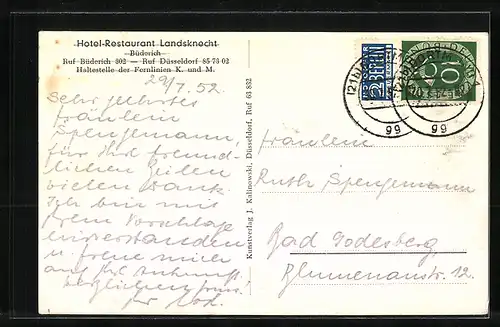 Hotel-Restaurant Landsknecht
Büderich
Ruf Büderich 802 — Ruf Düsseldorf 85 73 02
Haltestelle der Fernlinien K. und M.
29/7. 52.
Sehr geehrtes
Fräulein
Spengemann,
für Ihre freund-
lichen Zeilen
vielen Dank.
Ich bin mit
Ihrem Vorschlage
einverstanden
u. freue mich
auf Ihre Ankunft.
Herzlichen Gruss!
Ihr
Kunstverlag J. Kalinowski, Düsseldorf, Ruf 63 832
NOTOPFER
2 BERLIN
Fräulein
Ruth Spengemann
Bad Godesberg
Blumenaustr. 12.